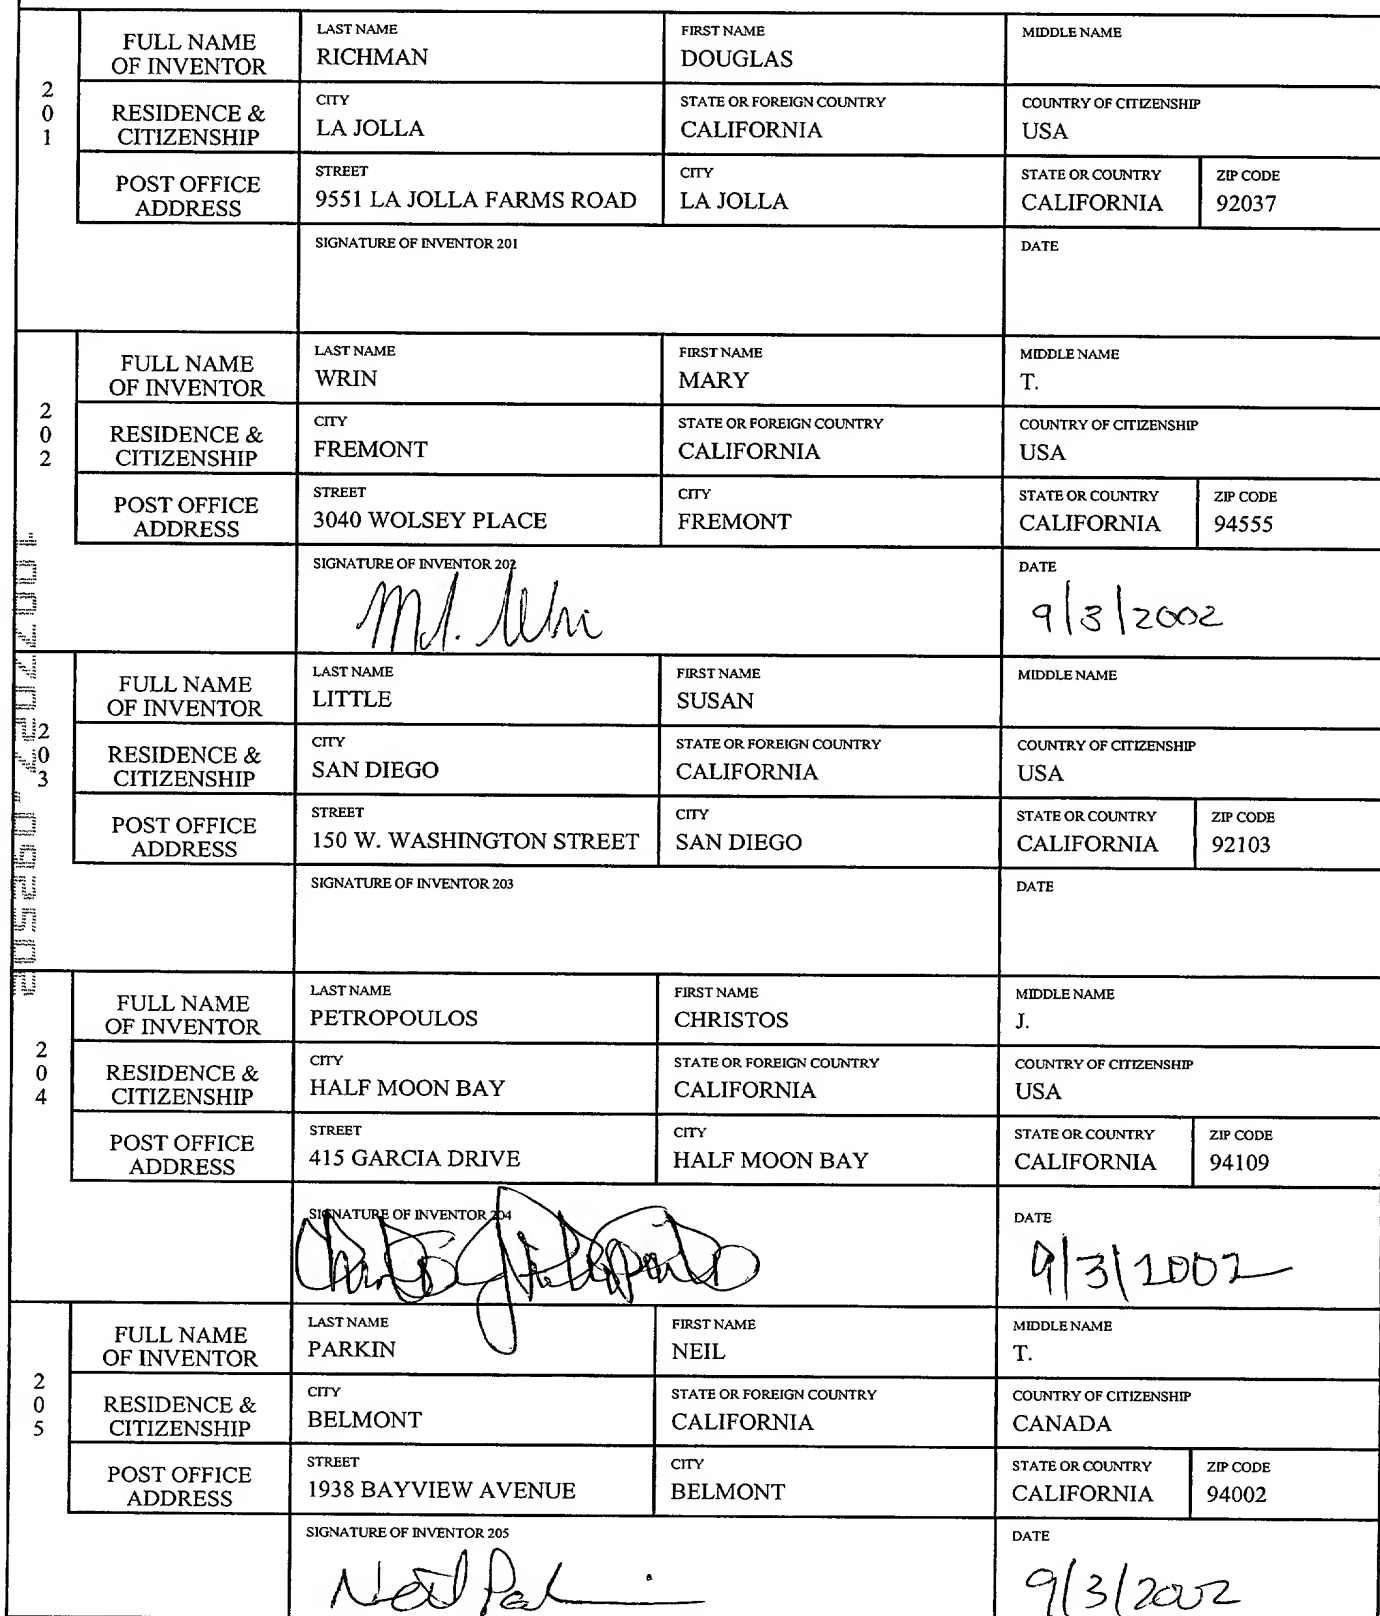 201
FULL NAME OF INVENTOR
LAST NAME
RICHMAN
FIRST NAME
DOUGLAS
MIDDLE NAME
RESIDENCE & CITIZENSHIP
CITY
LA JOLLA
STATE OR FOREIGN COUNTRY
CALIFORNIA
COUNTRY OF CITIZENSHIP
USA
POST OFFICE ADDRESS
STREET
9551 LA JOLLA FARMS ROAD
CITY
LA JOLLA
STATE OR COUNTRY
CALIFORNIA
ZIP CODE
92037
SIGNATURE OF INVENTOR 201
DATE
202
FULL NAME OF INVENTOR
LAST NAME
WRIN
FIRST NAME
MARY
MIDDLE NAME
T.
RESIDENCE & CITIZENSHIP
CITY
FREMONT
STATE OR FOREIGN COUNTRY
CALIFORNIA
COUNTRY OF CITIZENSHIP
USA
POST OFFICE ADDRESS
STREET
3040 WOLSEY PLACE
CITY
FREMONT
STATE OR COUNTRY
CALIFORNIA
ZIP CODE
94555
SIGNATURE OF INVENTOR 202
DATE
9/3/2002
203
FULL NAME OF INVENTOR
LAST NAME
LITTLE
FIRST NAME
SUSAN
MIDDLE NAME
RESIDENCE & CITIZENSHIP
CITY
SAN DIEGO
STATE OR FOREIGN COUNTRY
CALIFORNIA
COUNTRY OF CITIZENSHIP
USA
POST OFFICE ADDRESS
STREET
150 W. WASHINGTON STREET
CITY
SAN DIEGO
STATE OR COUNTRY
CALIFORNIA
ZIP CODE
92103
SIGNATURE OF INVENTOR 203
DATE
204
FULL NAME OF INVENTOR
LAST NAME
PETROPOULOS
FIRST NAME
CHRISTOS
MIDDLE NAME
J.
RESIDENCE & CITIZENSHIP
CITY
HALF MOON BAY
STATE OR FOREIGN COUNTRY
CALIFORNIA
COUNTRY OF CITIZENSHIP
USA
POST OFFICE ADDRESS
STREET
415 GARCIA DRIVE
CITY
HALF MOON BAY
STATE OR COUNTRY
CALIFORNIA
ZIP CODE
94109
SIGNATURE OF INVENTOR 204
DATE
9/3/2002
205
FULL NAME OF INVENTOR
LAST NAME
PARKIN
FIRST NAME
NEIL
MIDDLE NAME
T.
RESIDENCE & CITIZENSHIP
CITY
BELMONT
STATE OR FOREIGN COUNTRY
CALIFORNIA
COUNTRY OF CITIZENSHIP
CANADA
POST OFFICE ADDRESS
STREET
1938 BAYVIEW AVENUE
CITY
BELMONT
STATE OR COUNTRY
CALIFORNIA
ZIP CODE
94002
SIGNATURE OF INVENTOR 205
DATE
9/3/2002